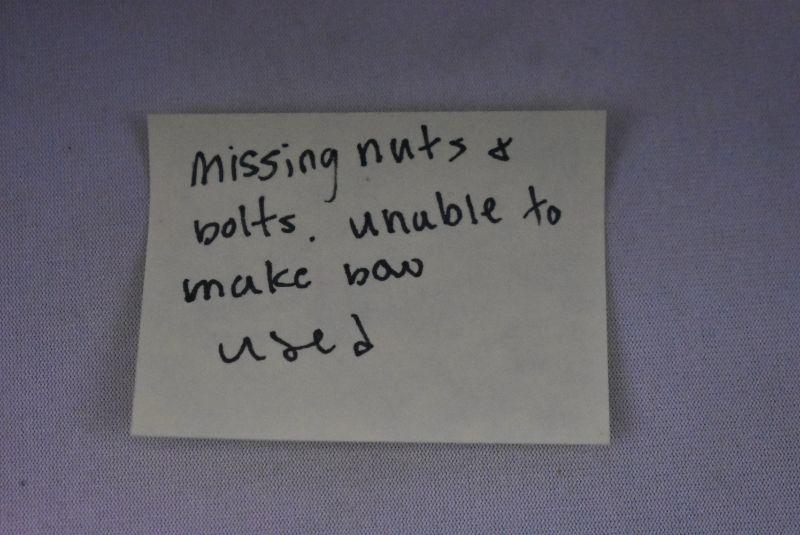 missing nuts &
bolts. unable to
make
used